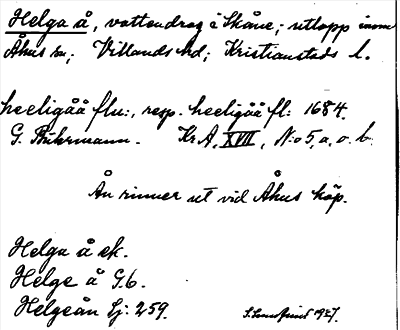 Helga å, vattendrag i Skåne; utlopp inom
Åhus sn; Villands hd; Kristianstads l.
heeligåå flu:, resp. heeligåå fl: 1684.
G. Buhrmann. Kr.A, XVII, N:o 5, a, o. b.
Ån rinner ut vid Åhus köp.
Helga å ek.
Helge å G.b.
Helgeån Lj: 259.
1927.